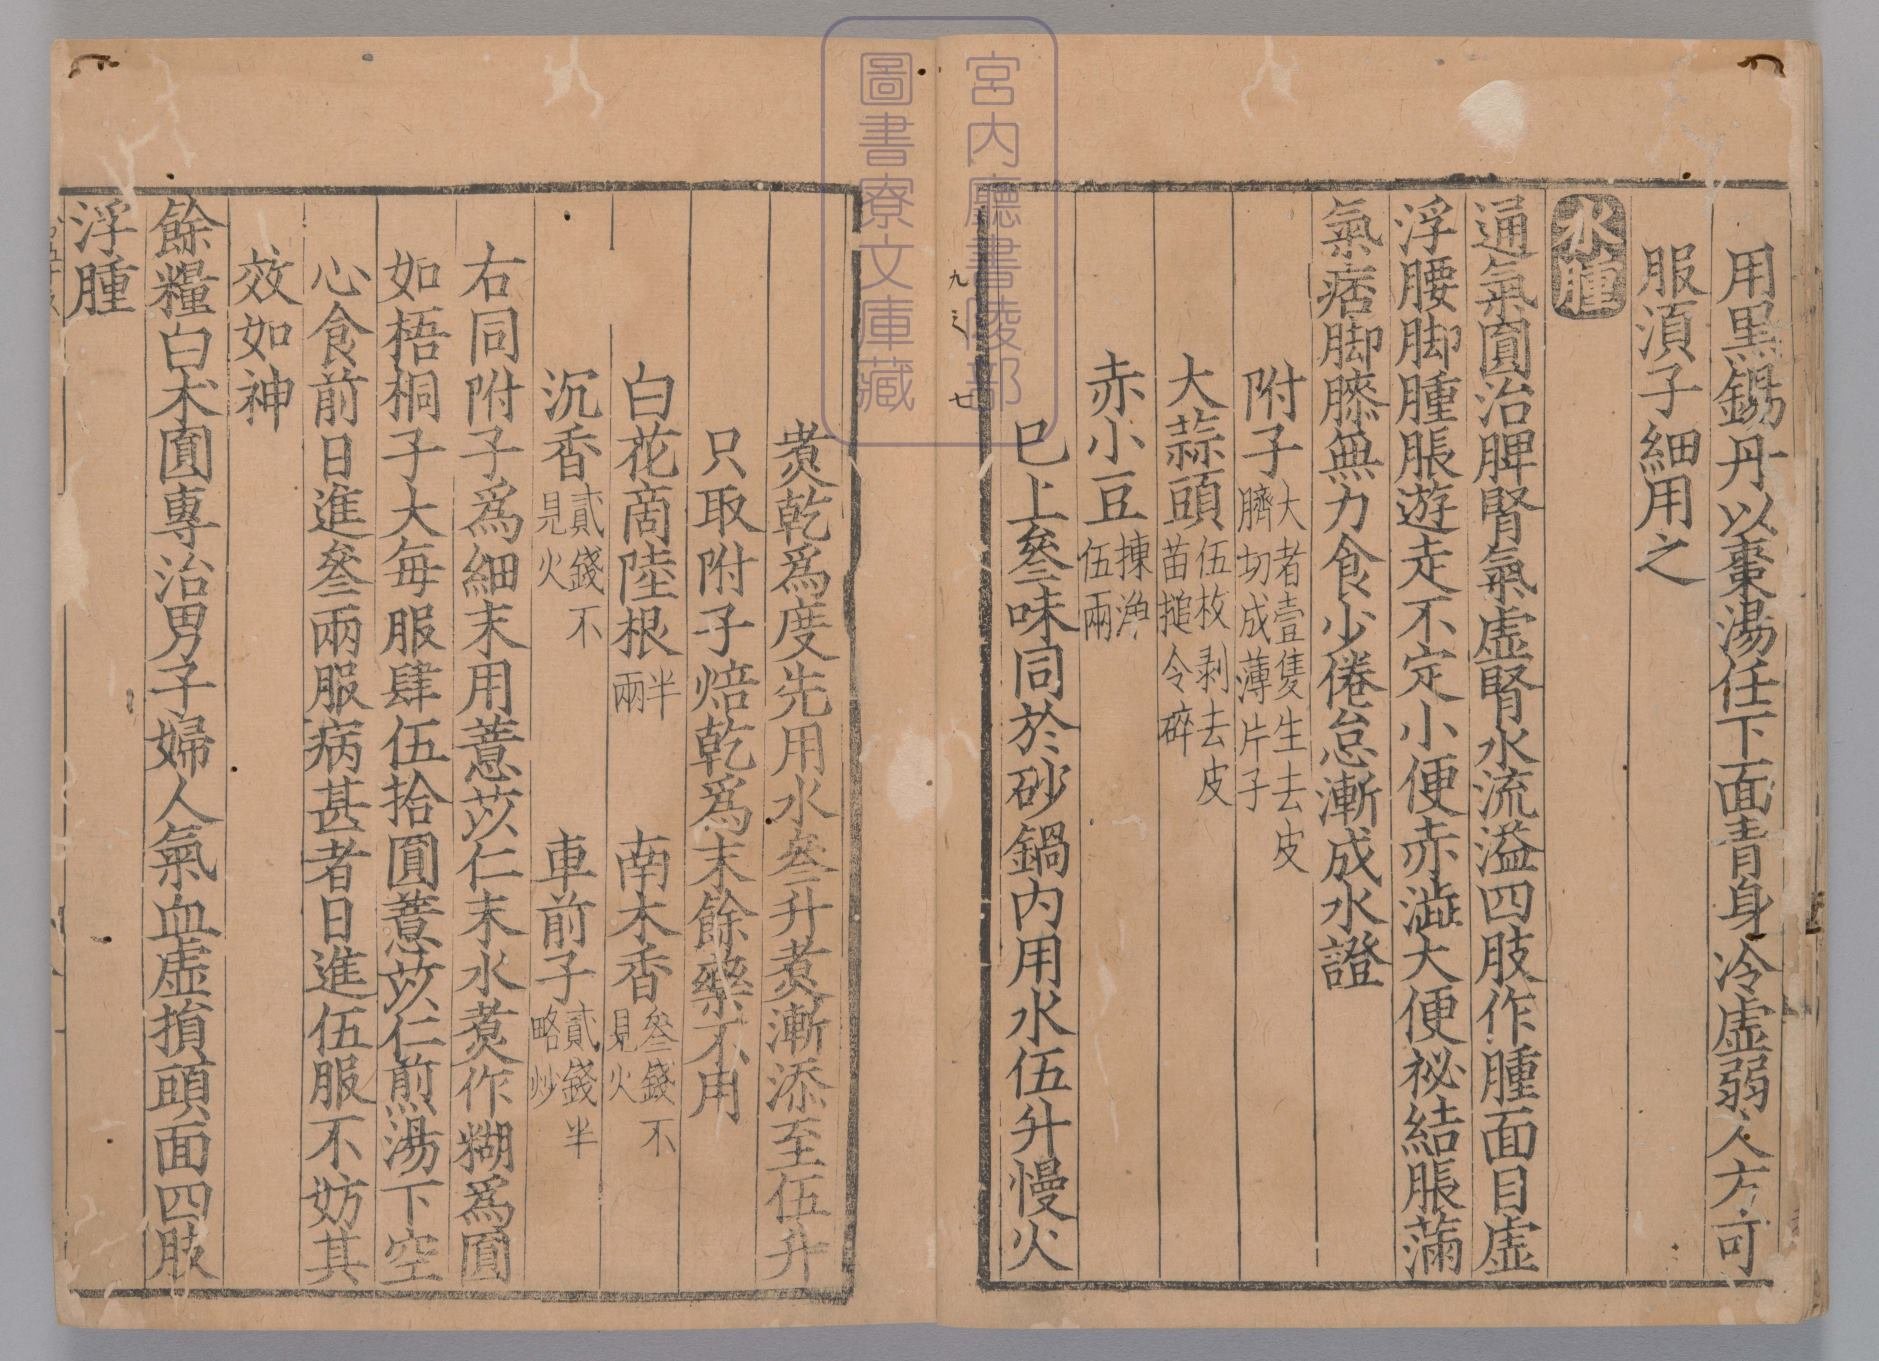 用黒錫丹以棗湯任下面青身冷虛弱人方可
服湏子細用之
水腫
通氣圓治脾腎氣虛腎水流溢四肢作腫面目虛
浮腰脚腫脹遊走不定小便赤澁大便祕結脹滿
氣痞脚膝無力食少倦怠漸成水證
附子大者壹隻生去皮臍切成薄片子
大蒜頭伍枚剥去皮苗搥令碎
赤小豆揀浄伍兩
巳上叄味同於砂鍋内用水伍升慢火
九之七
煑乾爲度先用水叄升煑漸添至伍升
只取附子焙乾爲末餘藥不用
白花商陸根半兩 南木香叄錢不見火
沉香貳錢不見火 車前子貳錢半略炒
右同附子爲細末用薏苡仁末水煑作糊爲圓
如梧桐子大每服肆伍拾圓薏苡仁煎湯下空
心食前日進叄兩服病甚者日進伍服不妨其
效如神
餘糧白朮圓專治男子婦人氣血虛損頭面四肢
浮腫
宮内廳書陵部
圖書寮文庫藏